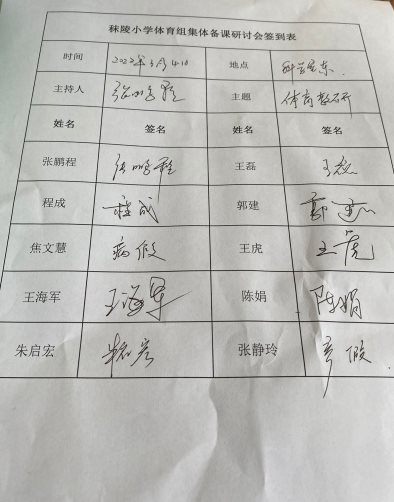 秣陵小学体育组集体备课研讨会签到表
时间 2022年3月4日 地点
主持人 张鹏程 主题 体育教研
姓名 签名 姓名 签名
张鹏程 张鹏程 王磊 王磊
程成 程成 郭建 郭建
焦文慧 病假 王虎 王虎
王海军 王海军 陈娟 陈娟
朱启宏 朱启宏 张静玲 产假